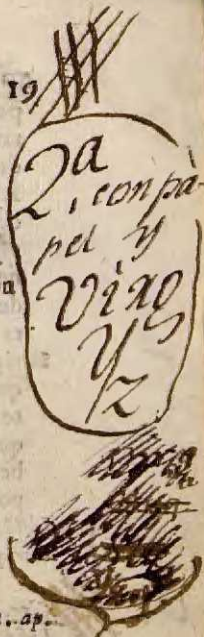 19
2a
, con pà-
pel y
Viño
Yz
n
. ap.